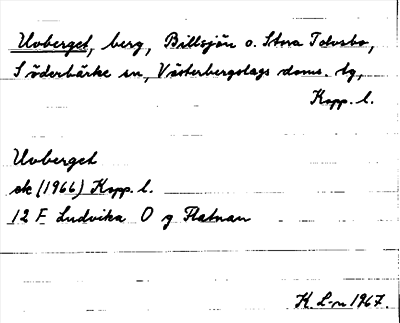 Uvberget, berg, Billsjön o. Stora Tolvsbo,
Söderbärke sn, Västerbergslags doms. tg,
Kopp. l.
Uvberget
ek (1966) Kopp. l.
12 F Ludvika O g Flatnan
K. L-n 1967.